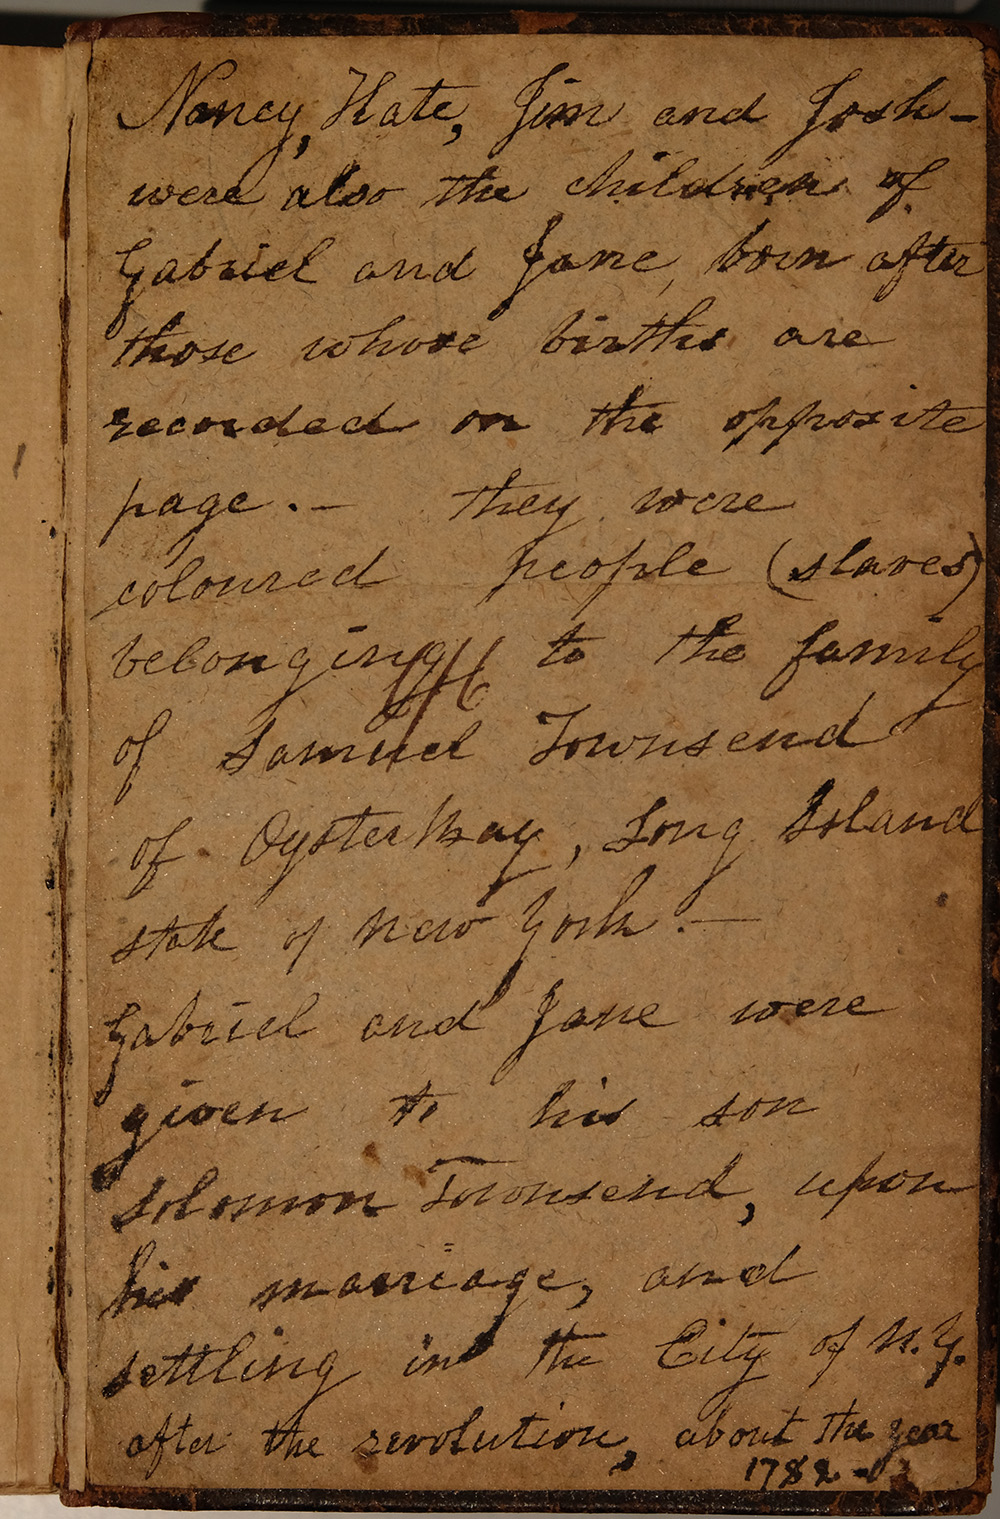 Nancy, Kate, Jim and Josh -
were also the children of
Gabriel and Jane, born after
those whose births are
recorded on the opposite
page. - they were
coloured people (slaves)
belonging to the family
of Samuel Townsend
of Oysterbay, Long Island
state of New York. -
Gabriel and Jane were
given to his son
Solomon Townsend, upon
his marriage, and
settling in the City of N.Y.
after the revolution, about the year